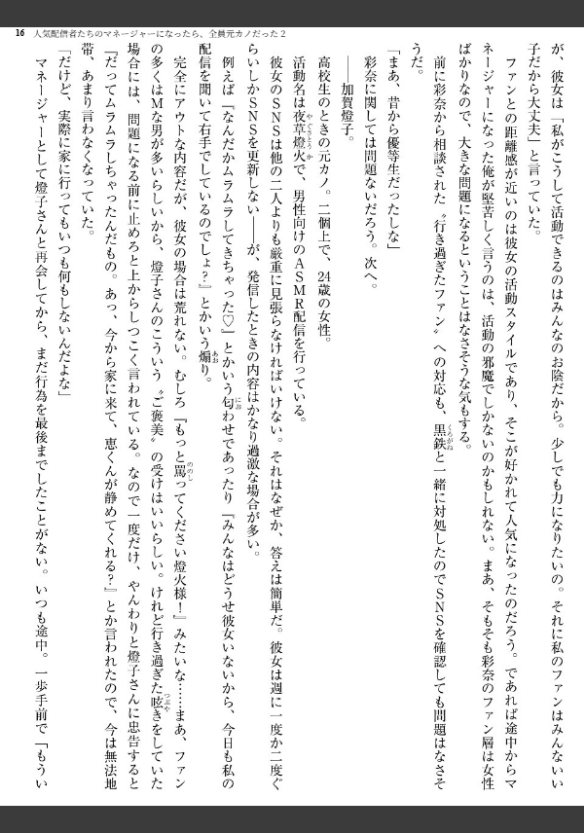 16 人気配信者たちのマネージャーになったら、全員元カノだった 2
が、彼女は「私がこうして活動できるのはみんなのお陰だから。少しでも力になりたいの。それに私のファンはみんないい
子だから大丈夫」と言っていた。
ファンとの距離感が近いのは彼女の活動スタイルであり、そこが好かれて人気になったのだろう。であれば途中からマ
ネージャーになった俺が堅苦しく言うのは、活動の邪魔でしかないのかもしれない。まあ、そもそも彩奈のファン層は女性
ばかりなので、大きな問題になるということはなさそうな気もする。
前に彩奈から相談された〝行き過ぎたファン〟への対応も、黒鉄と一緒に対処したのでSNSを確認しても問題はなさそ
うだ。
「まあ、昔から優等生だったしな」
彩奈に関しては問題ないだろう。次へ。
――加賀燈子。
高校生のときの元カノ。二個上で、24歳の女性。
活動名は夜草燈火で、男性向けのASMR配信を行っている。
彼女のSNSは他の二人よりも厳重に見張らなければいけない。それはなぜか、答えは簡単だ。彼女は週に一度か二度ぐ
らいしかSNSを更新しない――が、発信したときの内容はかなり過激な場合が多い。
例えば『なんだかムラムラしてきちゃった♡』とかいう匂わせであったり『みんなはどうせ彼女いないから、今日も私の
配信を聞いて右手でしているのでしょ？』とかいう煽り。
完全にアウトな内容だが、彼女の場合は荒れない。むしろ『もっと罵ってください燈火様！』みたいな……まあ、ファン
の多くはMな男が多いらしいから、燈子さんのこういう〝ご褒美〟の受けはいいらしい。けれど行き過ぎた呟きをしていた
場合には、問題になる前に止めろと上からしつこく言われている。なので一度だけ、やんわりと燈子さんに忠告すると
『だってムラムラしちゃったんだもの。あっ、今から家に来て、恵くんが静めてくれる？』とか言われたので、今は無法地
帯、あまり言わなくなっていた。
「だけど、実際に家に行ってもいつも何もしないんだよな」
マネージャーとして燈子さんと再会してから、まだ行為を最後までしたことがない。いつも途中。一歩手前で「もうい